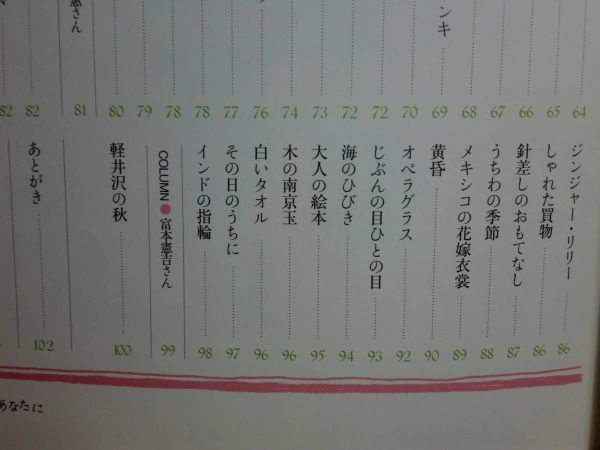 憲さん
ンキ
64
65
66
67
68
69
70
72
72
73
74
76
77
78
78
79
80
81
82
82
ジンジャー・リリー 86
しゃれた買物 86
針差しのおもてなし 87
うちわの季節 88
メキシコの花嫁衣裳 89
黄昏 90
オペラグラス 92
じぶんの目ひとの目 93
海のひびき 94
大人の絵本 95
木の南京玉 96
白いタオル 96
その日のうちに 97
インドの指輪 98
COLUMN●富本憲吉さん 99
軽井沢の秋 100
あとがき 102
あなたに